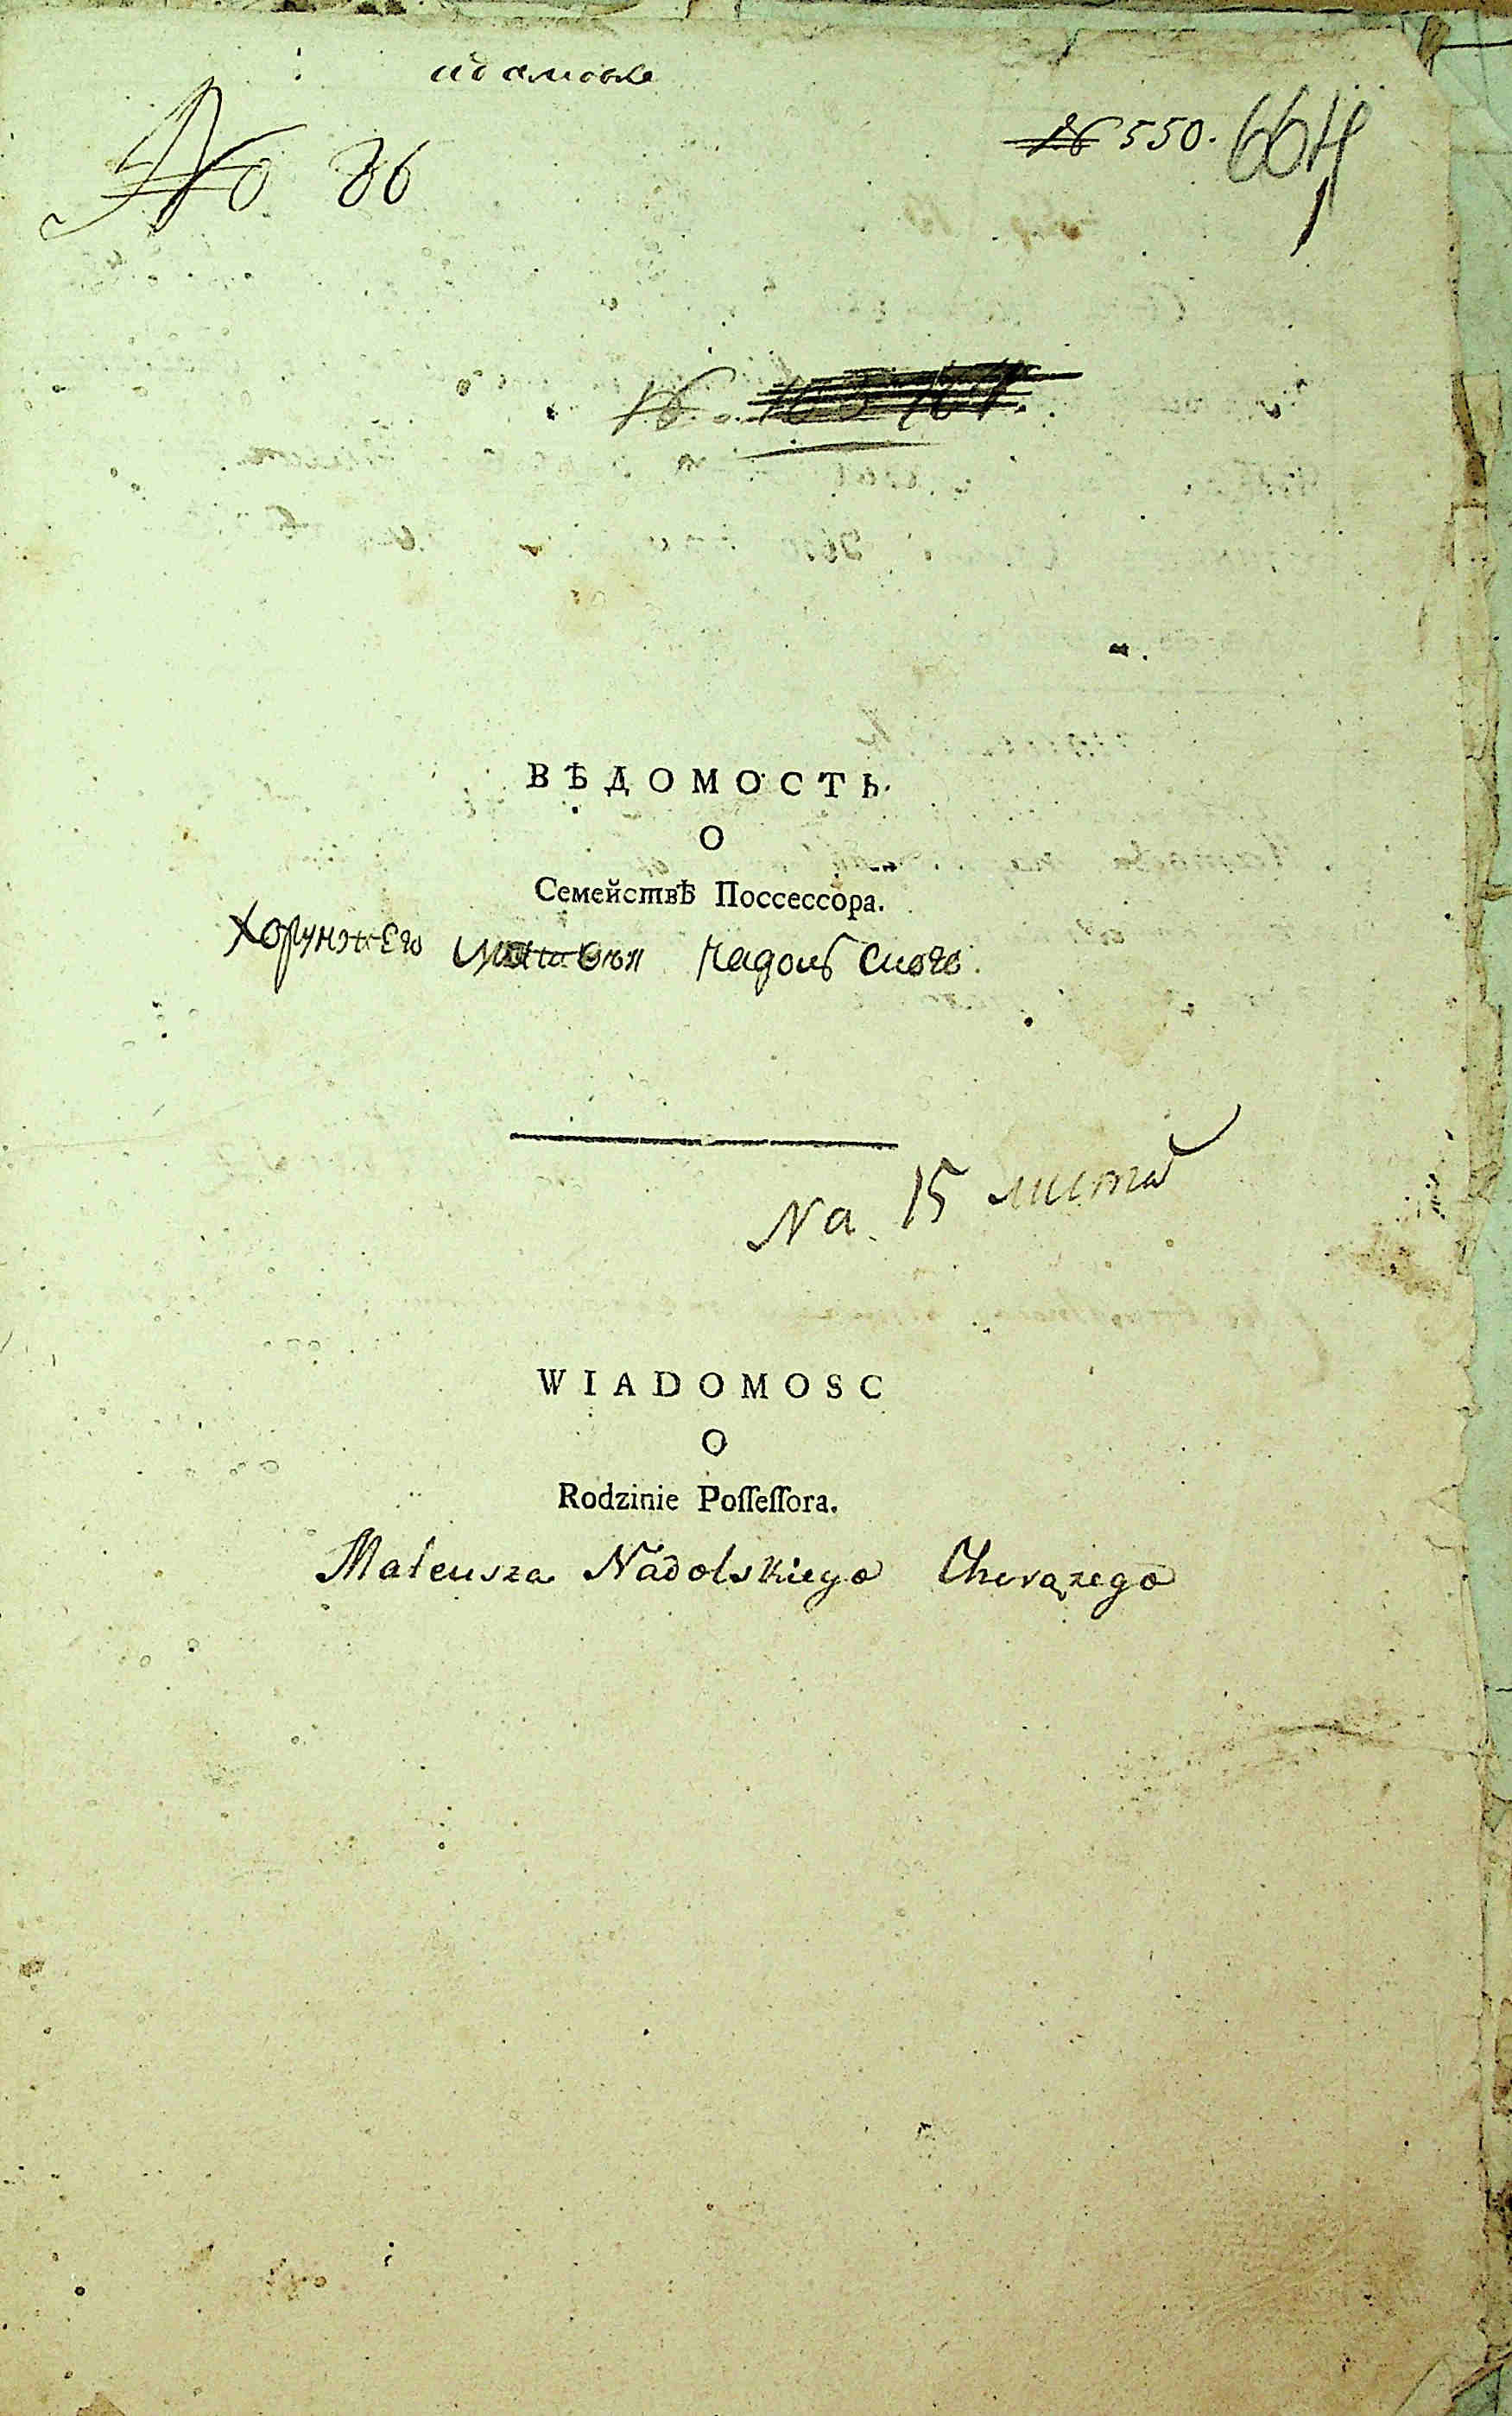 № 86
№ 550. 664
№
ВѢДОМОСТЬ
О
Семействѣ Поссессора.
Хорунжего Надольского.
На 15 листа
WIADOMOSC
O
Rodzinie Poſſeſſora.
Mateusza Nadolskiego Chorążego